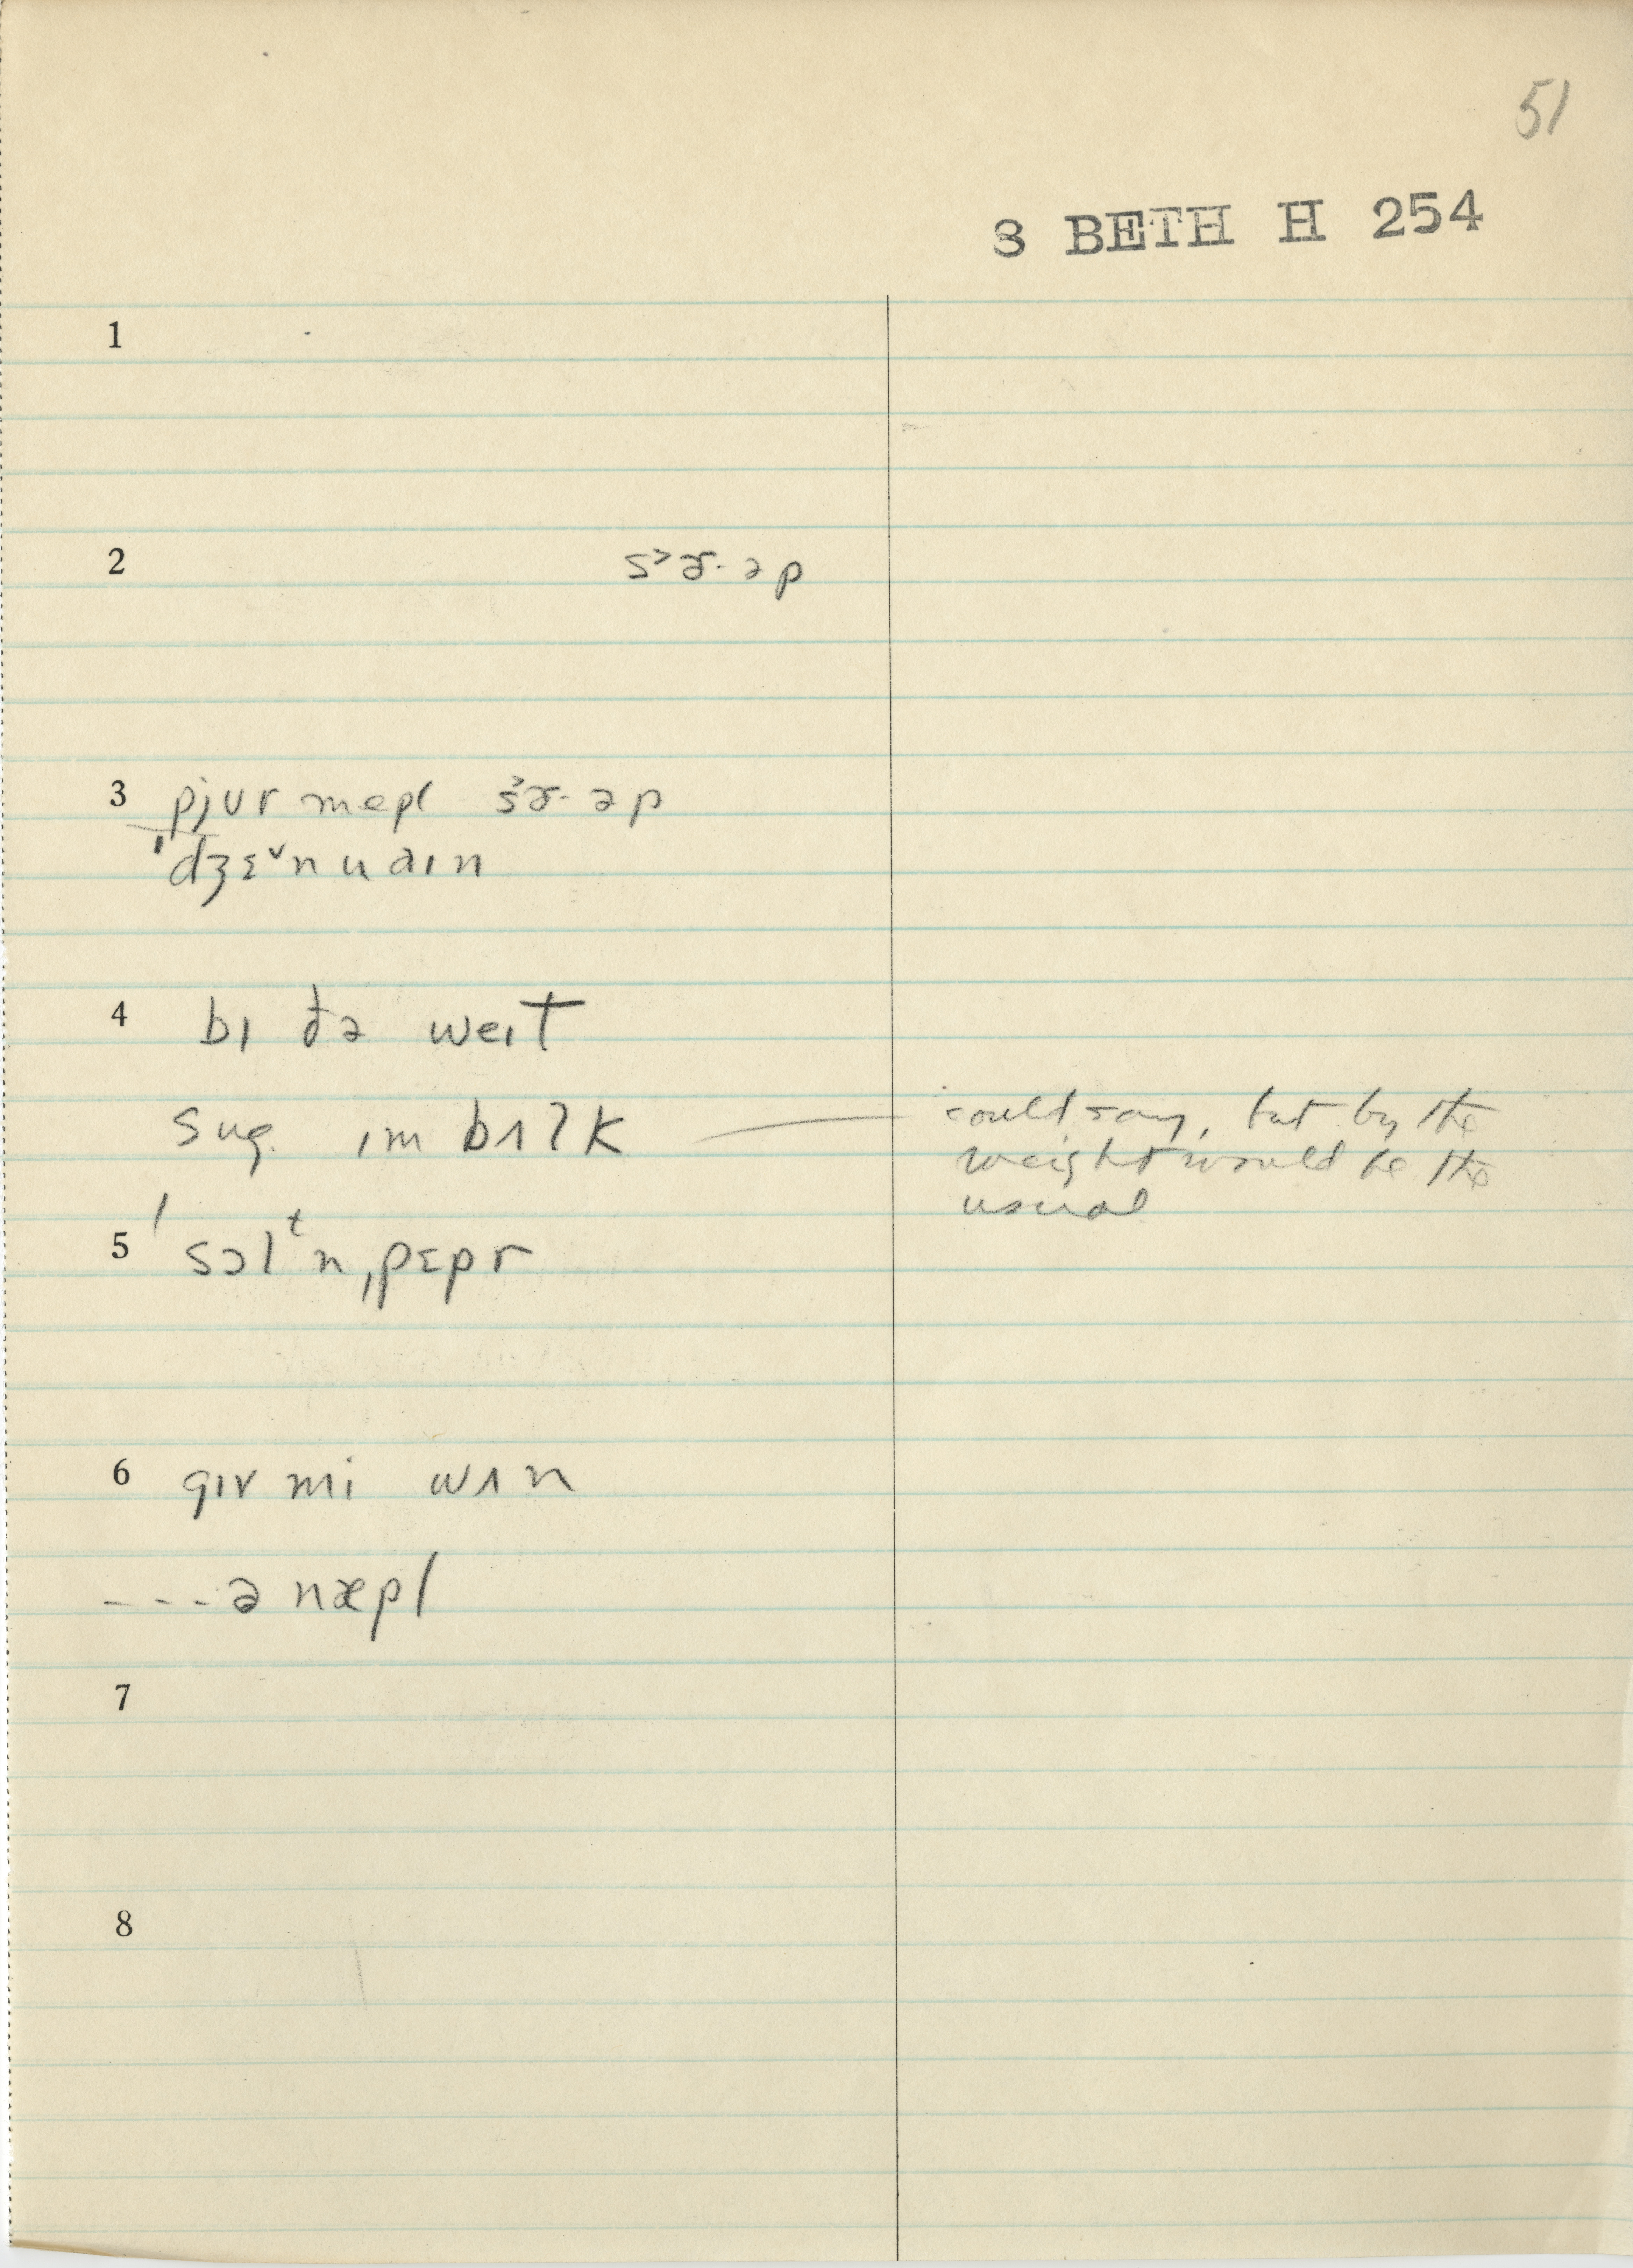 51
3 BETH H 254
1
2 s˃ɚ·əp
3 pjʊr mepl s˃ɚ·əp
ˈdʒɛ˅nuaɪn
4 bɪ ðə weɪt
sug. ɪm bʌlk could say, but by the
weight would be the
usual
5 ˈsɔlᵗn̩ˌpɛpr
6 gɪv mi wʌn
---ə næpl
7
8